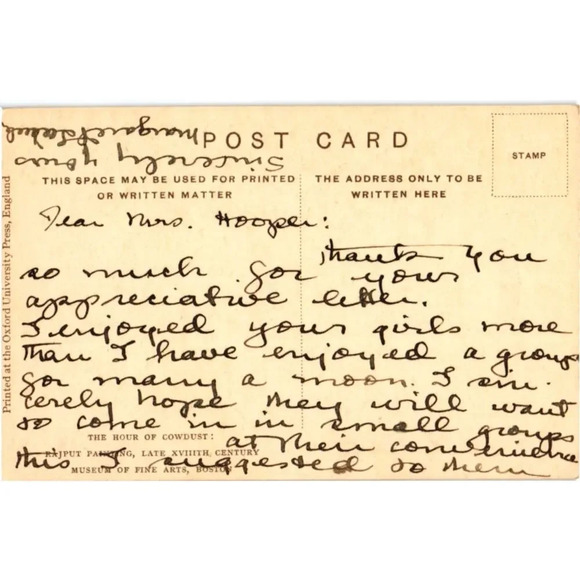 POST CARD
STAMP
THIS SPACE MAY BE USED FOR PRINTED
OR WRITTEN MATTER
THE ADDRESS ONLY TO BE
WRITTEN HERE
Dear Mrs. Hooper:
Thank you
so much for your
appreciative letter.
I enjoyed your girls more
than I have enjoyed a group
for many a moon. I sin-
cerely hope they will want
to come in in small groups
at their convenience
this I suggested to them
Sincerely yours
Margaret
THE HOUR OF COWDUST:
RAJPUT PAINTING, LATE XVIIITH CENTURY
MUSEUM OF FINE ARTS, BOSTON
Printed at the Oxford University Press, England